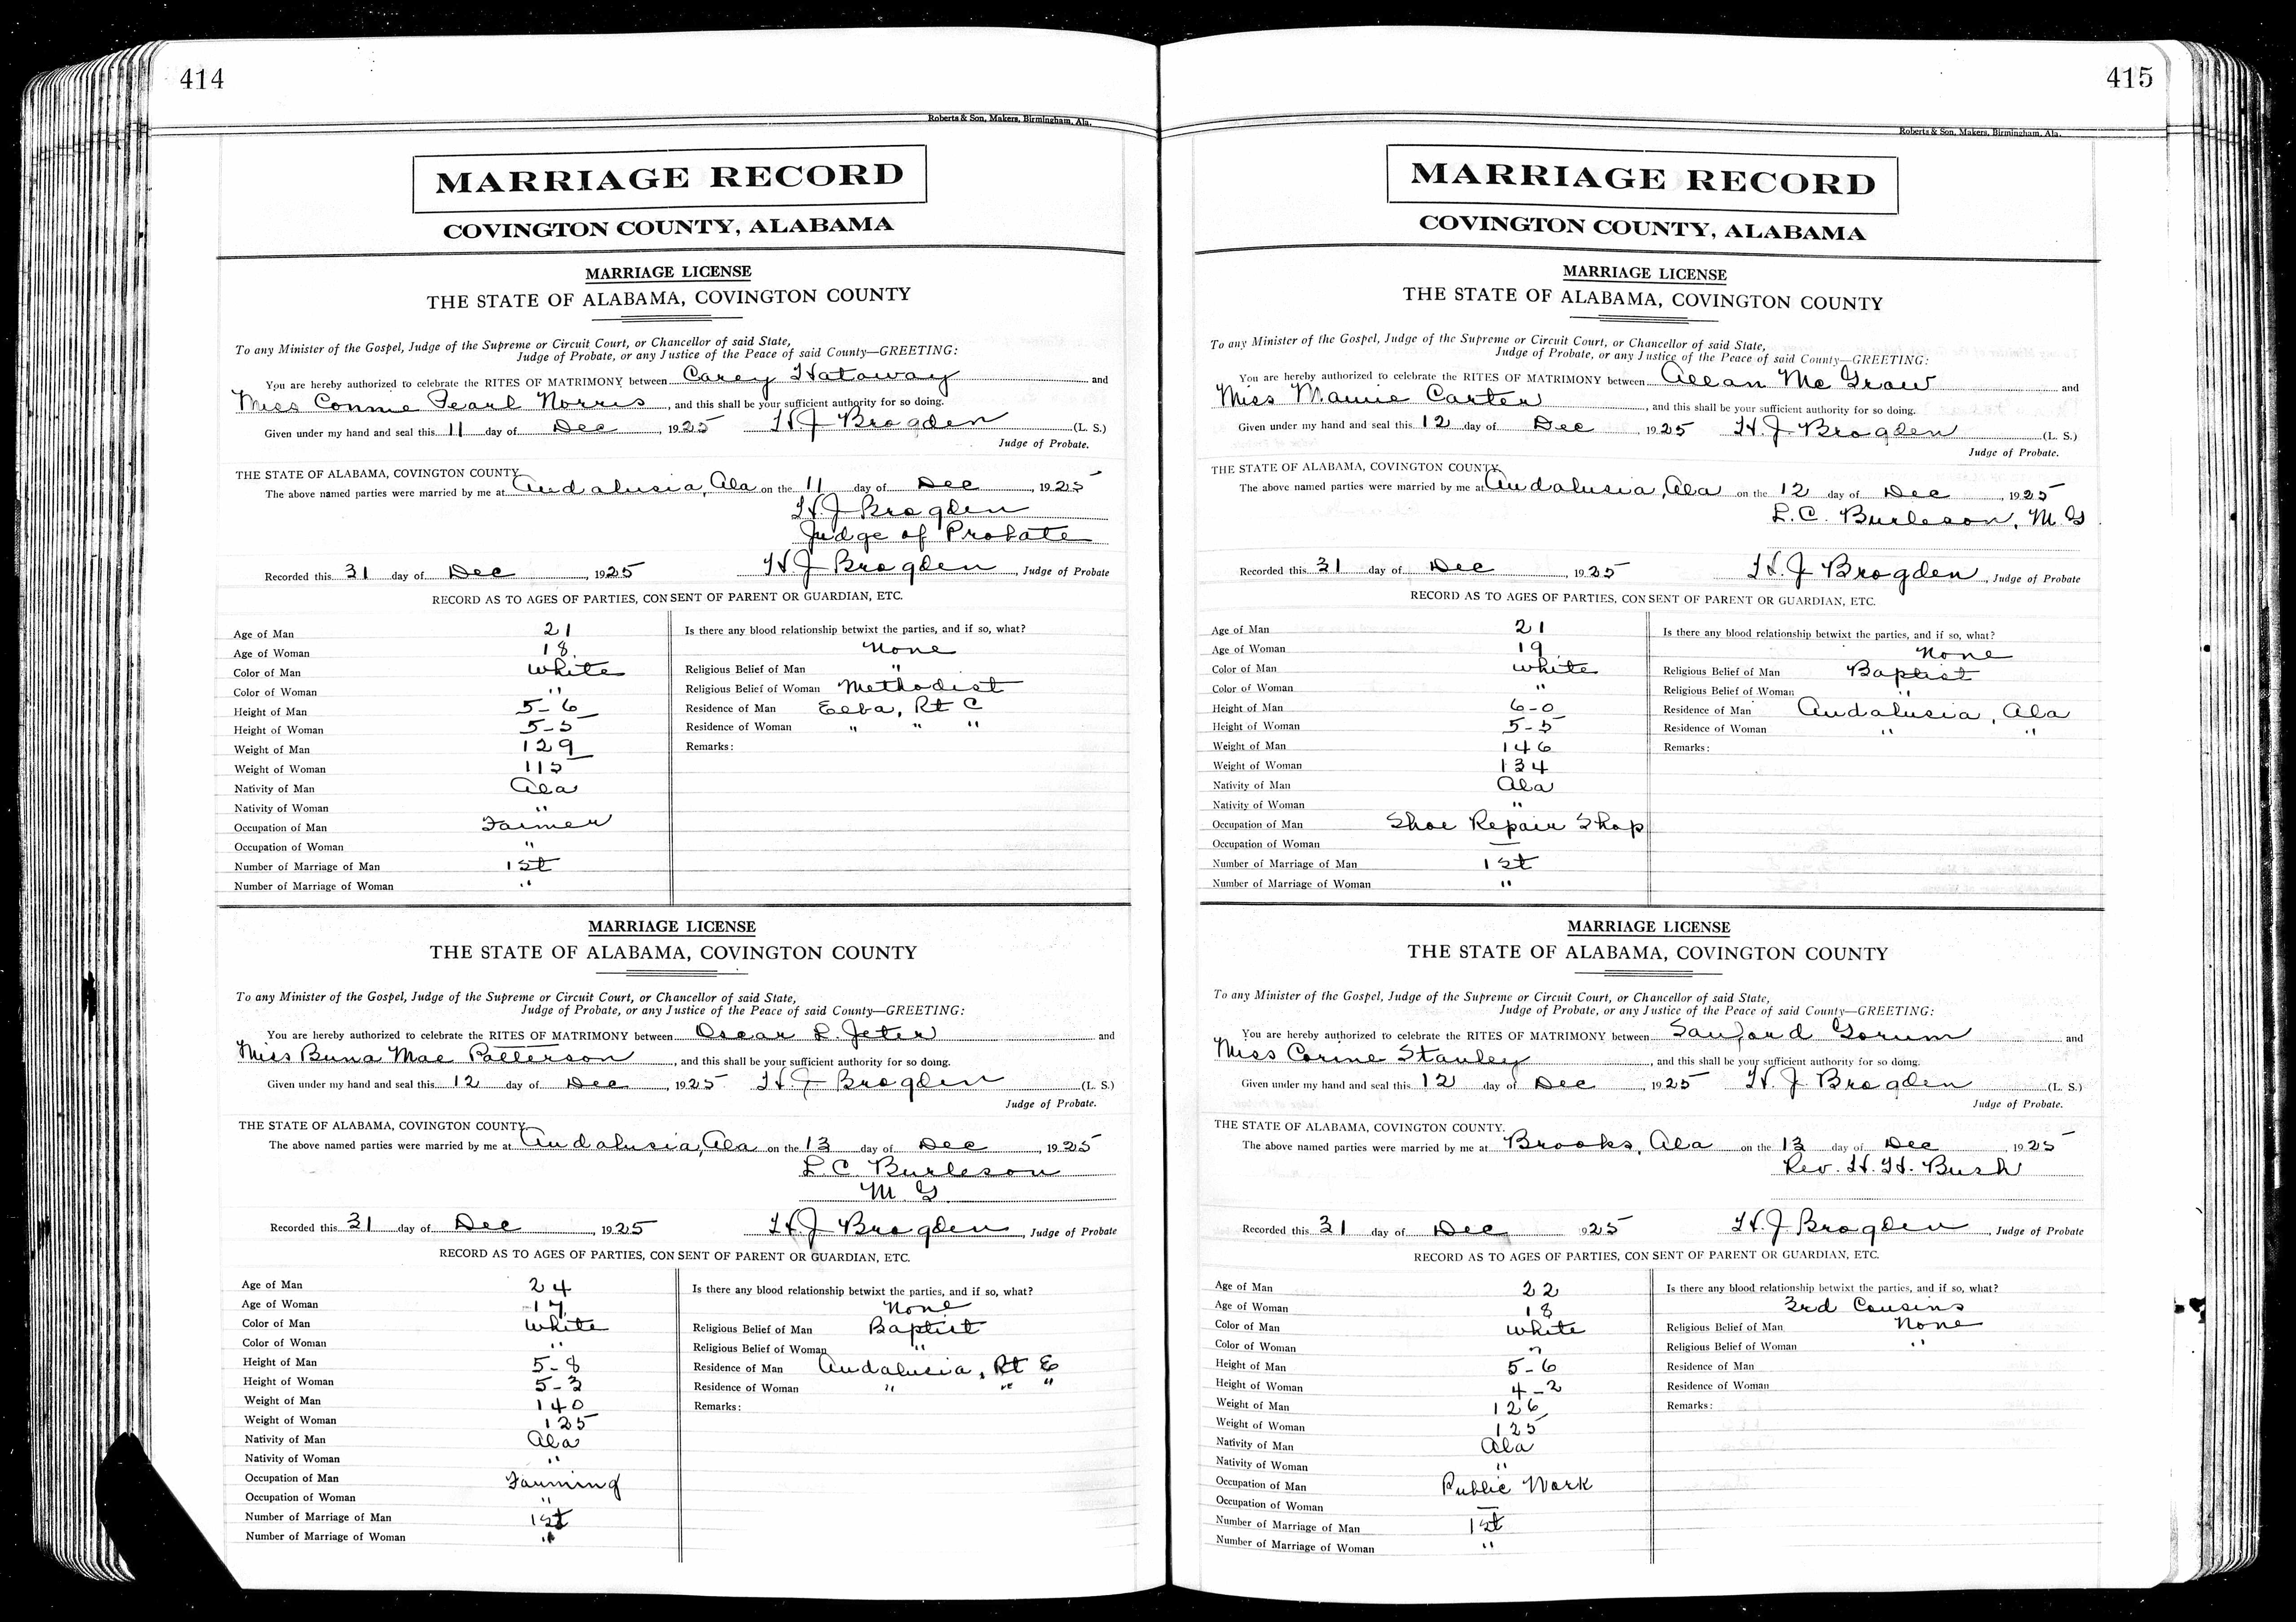 414
Roberts & Son, Makers, Birmingham, Ala.
MARRIAGE RECORD
COVINGTON COUNTY, ALABAMA
MARRIAGE LICENSE
THE STATE OF ALABAMA, COVINGTON COUNTY
To any Minister of the Gospel, Judge of the Supreme or Circuit Court, or Chancellor of said State,
Judge of Probate, or any Justice of the Peace of said County—GREETING:
You are hereby authorized to celebrate the RITES OF MATRIMONY between Carey Hataway and
Miss Connie Pearl Norris, and this shall be your sufficient authority for so doing.
Given under my hand and seal this 11 day of Dec, 1925 H J Brogden (L. S.)
Judge of Probate.
THE STATE OF ALABAMA, COVINGTON COUNTY.
The above named parties were married by me at Andalusia, Ala on the 11 day of Dec, 1925
H J Brogden
Judge of Probate
Recorded this 31 day of Dec, 1925 H J Brogden, Judge of Probate
RECORD AS TO AGES OF PARTIES, CONSENT OF PARENT OR GUARDIAN, ETC.
Age of Man 21
Age of Woman 18
Color of Man white
Color of Woman "
Height of Man 5-6
Height of Woman 5-5
Weight of Man 129
Weight of Woman 115
Nativity of Man Ala
Nativity of Woman "
Occupation of Man Farmer
Occupation of Woman "
Number of Marriage of Man 1st
Number of Marriage of Woman "
Is there any blood relationship betwixt the parties, and if so, what?
None
Religious Belief of Man "
Religious Belief of Woman Methodist
Residence of Man Elba, Rt C
Residence of Woman " " "
Remarks:
MARRIAGE LICENSE
THE STATE OF ALABAMA, COVINGTON COUNTY
To any Minister of the Gospel, Judge of the Supreme or Circuit Court, or Chancellor of said State,
Judge of Probate, or any Justice of the Peace of said County—GREETING:
You are hereby authorized to celebrate the RITES OF MATRIMONY between Oscar L. Jeter and
Miss Buna Mae Patterson, and this shall be your sufficient authority for so doing.
Given under my hand and seal this 12 day of Dec, 1925 H J Brogden (L. S.)
Judge of Probate.
THE STATE OF ALABAMA, COVINGTON COUNTY.
The above named parties were married by me at Andalusia, Ala on the 13 day of Dec, 1925
L. C. Burleson
M. G.
Recorded this 31 day of Dec, 1925 H J Brogden, Judge of Probate
RECORD AS TO AGES OF PARTIES, CONSENT OF PARENT OR GUARDIAN, ETC.
Age of Man 24
Age of Woman 17
Color of Man white
Color of Woman "
Height of Man 5-8
Height of Woman 5-3
Weight of Man 140
Weight of Woman 125
Nativity of Man Ala
Nativity of Woman "
Occupation of Man Farming
Occupation of Woman "
Number of Marriage of Man 1st
Number of Marriage of Woman "
Is there any blood relationship betwixt the parties, and if so, what?
None
Religious Belief of Man Baptist
Religious Belief of Woman "
Residence of Man Andalusia, Rt E
Residence of Woman " " "
Remarks:
415
Roberts & Son, Makers, Birmingham, Ala.
MARRIAGE RECORD
COVINGTON COUNTY, ALABAMA
MARRIAGE LICENSE
THE STATE OF ALABAMA, COVINGTON COUNTY
To any Minister of the Gospel, Judge of the Supreme or Circuit Court, or Chancellor of said State,
Judge of Probate, or any Justice of the Peace of said County—GREETING:
You are hereby authorized to celebrate the RITES OF MATRIMONY between Allan McGraw and
Miss Mamie Carter, and this shall be your sufficient authority for so doing.
Given under my hand and seal this 12 day of Dec, 1925 H. J Brogden (L. S.)
Judge of Probate.
THE STATE OF ALABAMA, COVINGTON COUNTY.
The above named parties were married by me at Andalusia, Ala on the 12 day of Dec, 1925
L. C. Burleson, M G
Recorded this 31 day of Dec, 1925 H. J Brogden, Judge of Probate
RECORD AS TO AGES OF PARTIES, CONSENT OF PARENT OR GUARDIAN, ETC.
Age of Man 21
Age of Woman 19
Color of Man white
Color of Woman "
Height of Man 6-0
Height of Woman 5-5
Weight of Man 146
Weight of Woman 134
Nativity of Man Ala
Nativity of Woman "
Occupation of Man Shoe Repair Shop
Occupation of Woman —
Number of Marriage of Man 1st
Number of Marriage of Woman "
Is there any blood relationship betwixt the parties, and if so, what?
None
Religious Belief of Man Baptist
Religious Belief of Woman "
Residence of Man Andalusia, Ala
Residence of Woman " "
Remarks:
MARRIAGE LICENSE
THE STATE OF ALABAMA, COVINGTON COUNTY
To any Minister of the Gospel, Judge of the Supreme or Circuit Court, or Chancellor of said State,
Judge of Probate, or any Justice of the Peace of said County—GREETING:
You are hereby authorized to celebrate the RITES OF MATRIMONY between Sanford Gorum and
Miss Corine Stanley, and this shall be your sufficient authority for so doing.
Given under my hand and seal this 12 day of Dec, 1925 H. J Brogden (L. S.)
Judge of Probate.
THE STATE OF ALABAMA, COVINGTON COUNTY.
The above named parties were married by me at Brooks, Ala on the 13 day of Dec, 1925
Rev. H. H. Bush
Recorded this 31 day of Dec 1925 H. J Brogden, Judge of Probate
RECORD AS TO AGES OF PARTIES, CONSENT OF PARENT OR GUARDIAN, ETC.
Age of Man 22
Age of Woman 18
Color of Man white
Color of Woman "
Height of Man 5-6
Height of Woman 4-2
Weight of Man 126
Weight of Woman 125
Nativity of Man Ala
Nativity of Woman "
Occupation of Man Public Work
Occupation of Woman —
Number of Marriage of Man 1st
Number of Marriage of Woman "
Is there any blood relationship betwixt the parties, and if so, what?
3rd Cousins
Religious Belief of Man None
Religious Belief of Woman "
Residence of Man
Residence of Woman
Remarks: